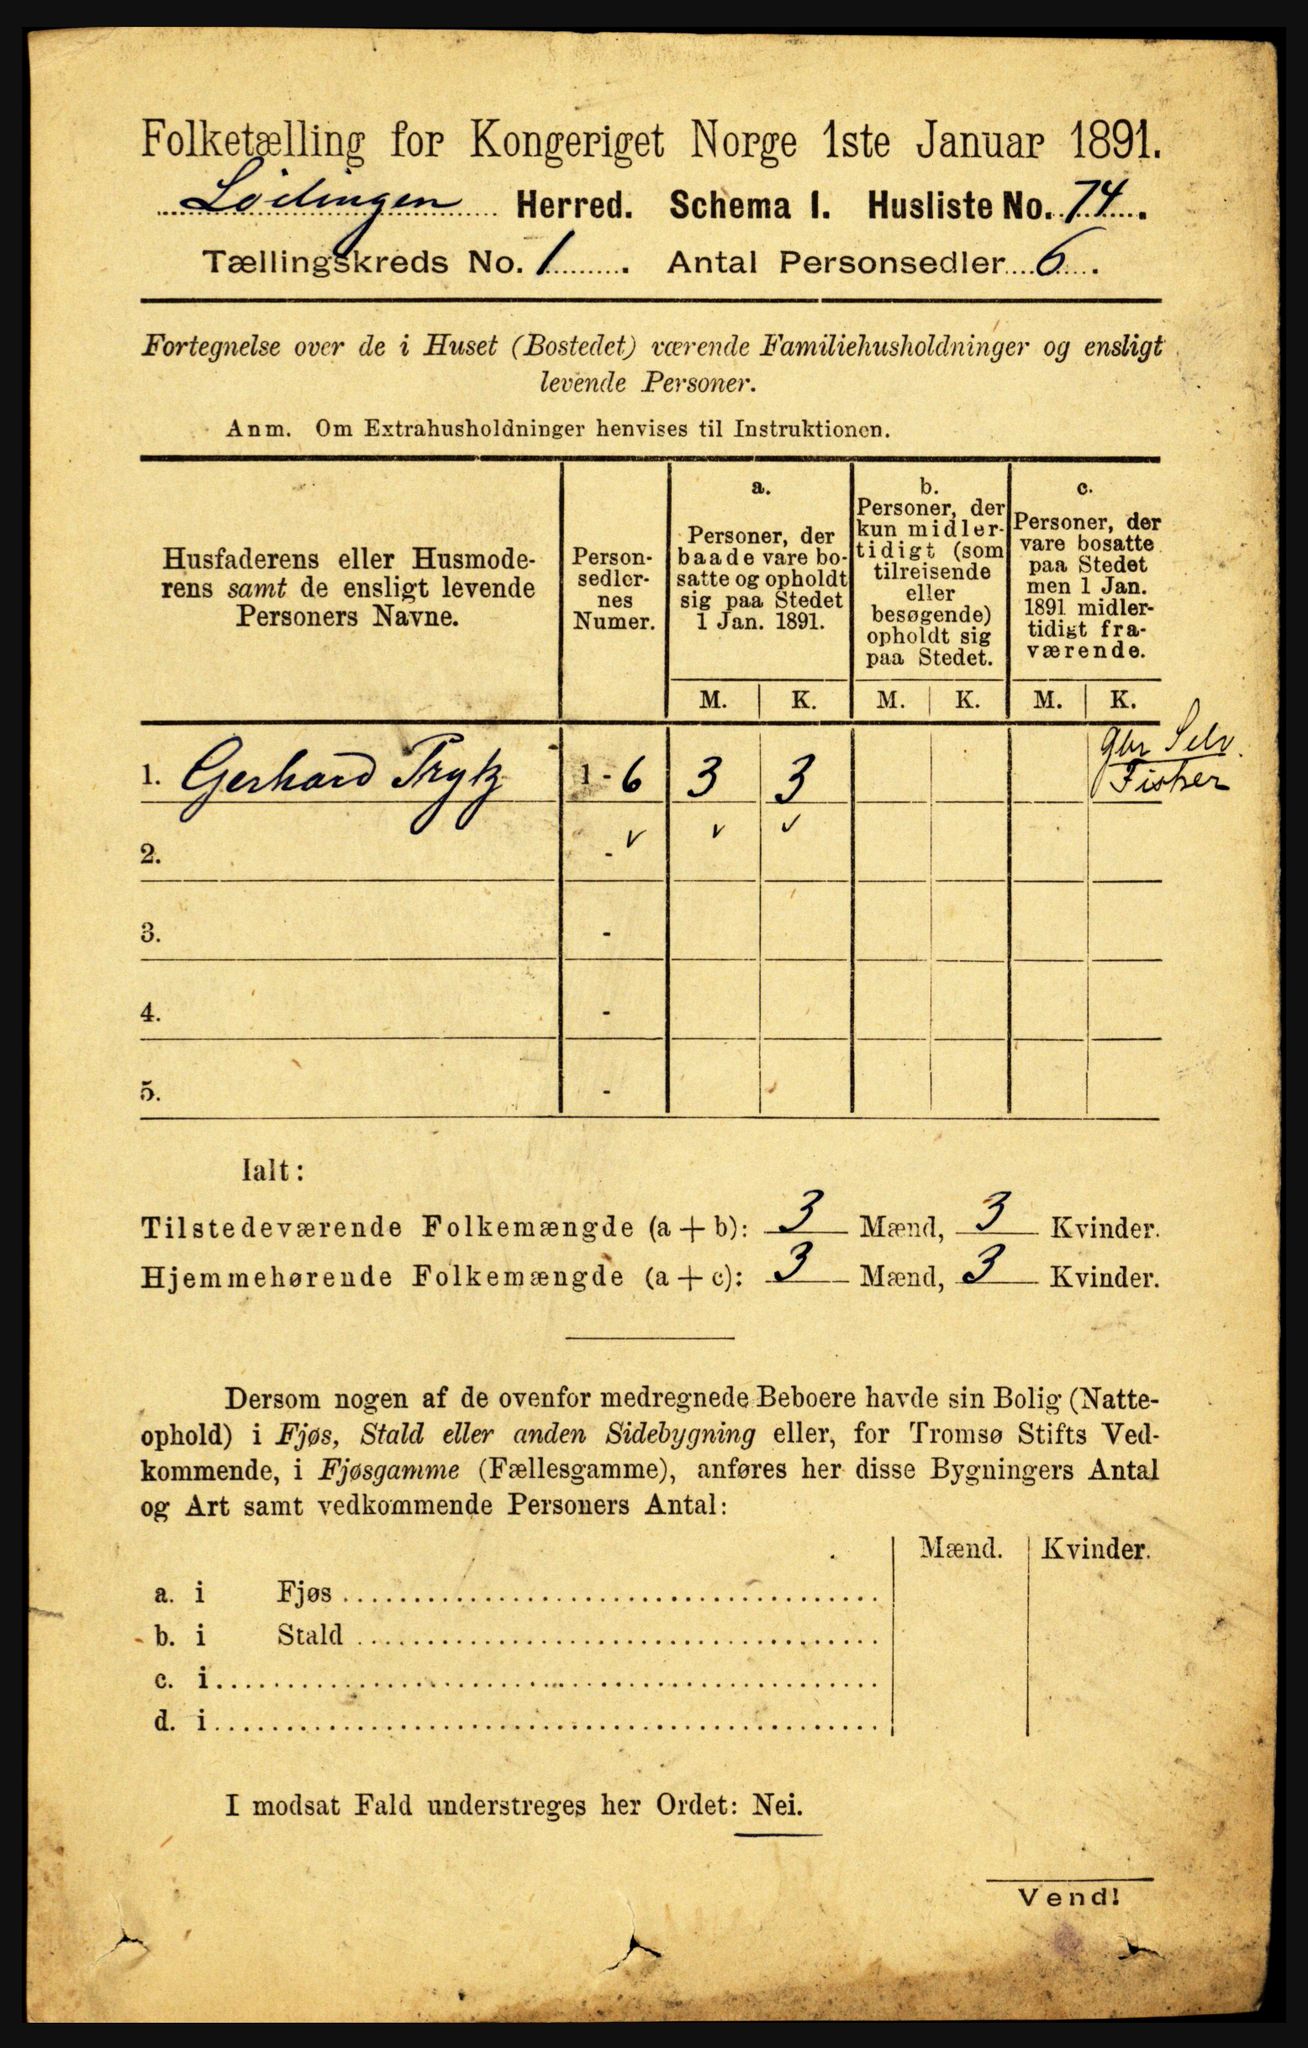 Folketælling for Kongeriget Norge 1ste Januar 1891.
Lödingen Herred. Schema I. Husliste No. 74.
Tællingskreds No. 1. Antal Personsedler 6.
Fortegnelse over de i Huset (Bostedet) værende Familiehusholdninger og ensligt
levende Personer.
Anm. Om Extrahusholdninger henvises til Instruktionen.
Husfaderens eller Husmode-
rens samt de ensligt levende
Personers Navne.
Person-
sedler-
nes
Numer.
a.
Personer, der
baade vare bo-
satte og opholdt
sig paa Stedet
1 Jan. 1891.
b.
Personer, der
kun midler-
tidigt (som
tilreisende
eller
besøgende)
opholdt sig
paa Stedet.
c.
Personer, der
vare bosatte
paa Stedet
men 1 Jan.
1891 midler-
tidigt fra-
værende.
M. K. M. K. M. K.
Gbr Selv.
1. Gerhard Trytz 1 - 6 3 3 Fisker
2. - v v v
3. -
4. -
5. -
Ialt:
Tilstedeværende Folkemængde (a + b): 3 Mænd, 3 Kvinder.
Hjemmehørende Folkemængde (a + c): 3 Mænd, 3 Kvinder.
Dersom nogen af de ovenfor medregnede Beboere havde sin Bolig (Natte-
ophold) i Fjøs, Stald eller anden Sidebygning eller, for Tromsø Stifts Ved-
kommende, i Fjøsgamme (Fællesgamme), anføres her disse Bygningers Antal
og Art samt vedkommende Personers Antal:
Mænd. Kvinder.
a. i Fjøs
b. i Stald
c. i
d. i
I modsat Fald understreges her Ordet: Nei.
Vend!